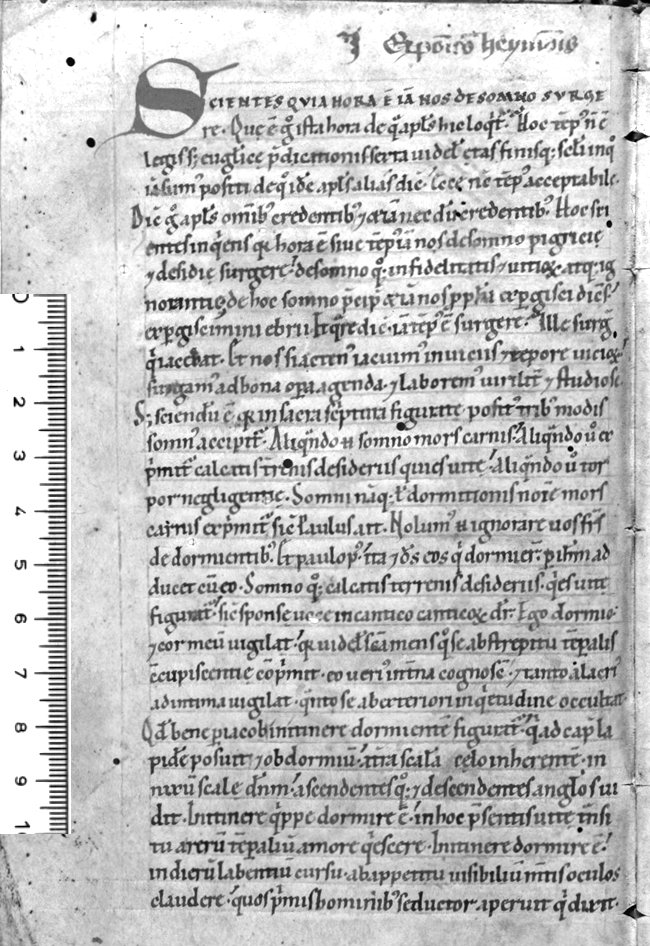 Expositio heymonis
SCIENTES QVIA HORA Ē IĀ NOS DE SOMNO SVRGE
re. Quę ē g° ista hora de q̄ apl's hic loq̄t'. Hoc tēp' n̄ ē
legis s; euglicę p̄dicationis
iā sum' positi de q° idē apl's aliās dic̄. Ecce n̄c tēp' acceptabile.
Dic̄ g° apl's omib' credentib' 7 &iā necdū credentib'. Hoc sci
entes inq'ens q hora ē siue tēp' iā nos de somno pigricię
7 desidię surgere. de somno q°; infidelitatis 7 uitioꝝ atq; ig
norantię de hoc somno p̄cip &iā nos pph'a expgisci dic̄s.
expgiscimini ebrii. Et q̄re dic̄. iā tēp' ē surgere. Ille surg̃
q' iacebat. Et nos si acten' iacuim' in uiciis 7 tepore uicioꝝ
surgam' ad bona opa agenda. 7 laborem' uirilit' 7 studiose.
S; sciendū ē. q in sacra sc̄ptura figurate posit' trib' modis
somn' accipit'. Aliq̄ndo n̄ somno mors carnis. Aliq̄ndo ū ex
p̄mit' calcatis t̄renis desideriis quies uitę. Aliq̄ndo ū tor
por negligentię. Somni nāq; ł dormitionis noīe mors
carnis exp̄mit' sic̄ Paulus ait. Nolum' n̄ ignorare uos fr̄s
de dormientib'. Et paulop'. ita 7 d's eos q' dormier̄. p ih'm ad
ducet cū eo. Somno q°; calcatis terrenis desideriis. q'es uitę
figurat'. sic̄ sponsę uoce in cantico canticoꝝ dr̄. Ego dormio.
7 cor meū uigilat. q uidel' sc̄a mens q° se ab strepitu tēpalis
c̄cupiscentię cōp̄mit. eo ueri' int̄na cognosc̄. 7 tanto alacri'
ad intima uigilat. q̄nto se ab exteriori inq'etudine occultat.
Qd' bene p iacob in itinere dormientē figurat'. q' ad cap' la
pidē posuit 7 obdormiū. a t̄ra scalā cęlo inherentē. in
nixū scalę dn̄m. ascendentes q°; 7 descendentes anglos ui
dit. In itinere q'ppe dormire ē. in hoc p̄sentis uitę t̄nsi
tu a rerū tēpaliū amore q'escere. In itinere dormire ē.
in dierū labentiū cursu. ab appetitu uisibiliū m̄tis oculos
claudere. quos p̄mis hominib' seductor aperuit q' dixit.